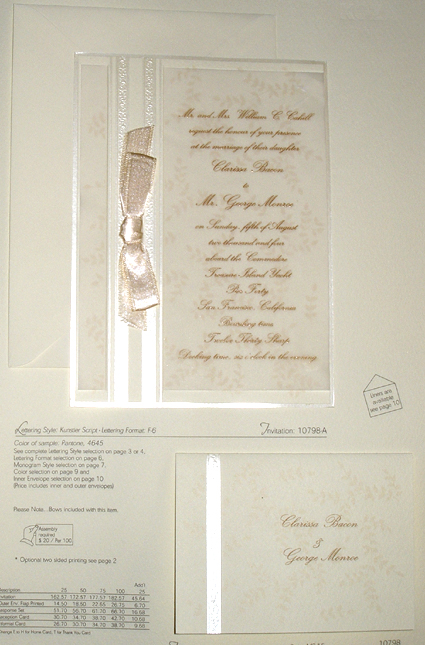 Mr. and Mrs. William C. Cahill
request the honour of your presence
at the marriage of their daughter
Clarissa Bacon
to
Mr. George Monroe
on Sunday, fifth of August
two thousand and four
aboard the Commodore
Treasure Island Yacht
Pier Forty
San Francisco, California
Boarding time
Twelve Thirty Sharp
Docking time, six o'clock in the evening
Liners are
available
see page 10
Lettering Style: Kunster Script - Lettering Format: F-6
Invitation: 10798-A
Color of sample: Pantone, 4645
See complete Lettering Style selection on page 3 or 4,
Lettering Format selection on page 6,
Monogram Style selection on page 7,
Color selection on page 9 and
Inner Envelope selection on page 10
(Price includes inner and outer envelopes)
Please Note...Bows included with this item.
Assembly
required
$ 20 / Per 100
* Optional two sided printing see page 2
Clarissa Bacon
&
George Monroe
Description 25 50 75 100 Add'l 25
Invitation
Outer Env. Flap Printed 14.50 18.50 22.65 26.75 6.70
Response Set
Reception Card 30.70 34.70 38.70 42.70 10.68
Informal Card 26.70 30.70 34.70 38.70 9.68
Change F to H for Home Card, T for Thank You Card
10798